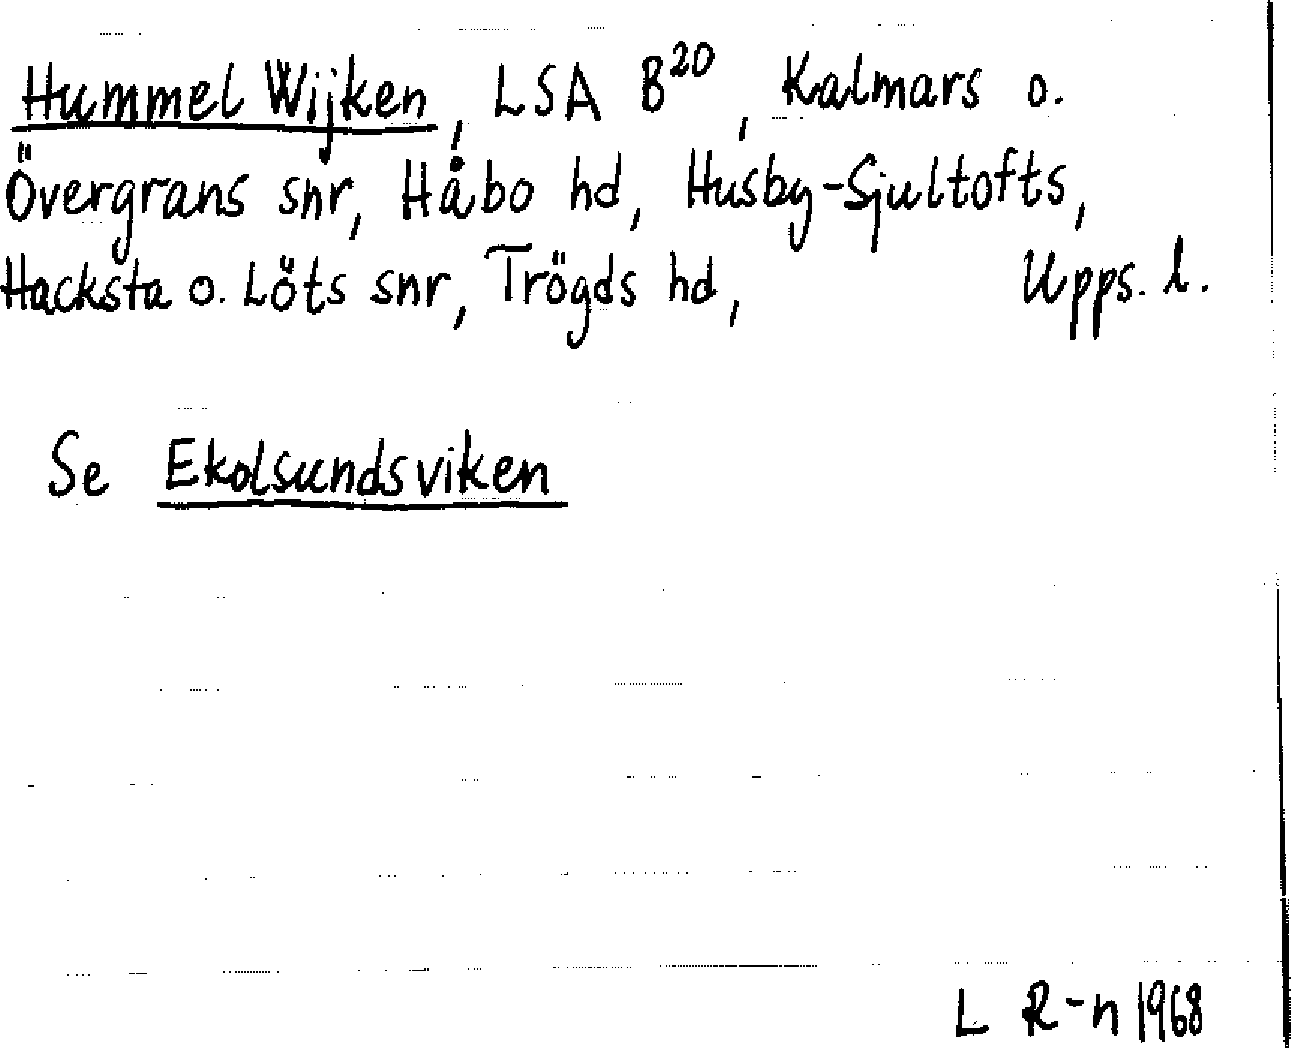 Hummel Wijken, LSA B²⁰, Kalmars o.
Övergrans snr, Håbo hd, Husby-Sjultofts,
Hacksta o. Löts snr, Trögds hd, Upps. l.
Se Ekolsundsviken
L R-n 1968